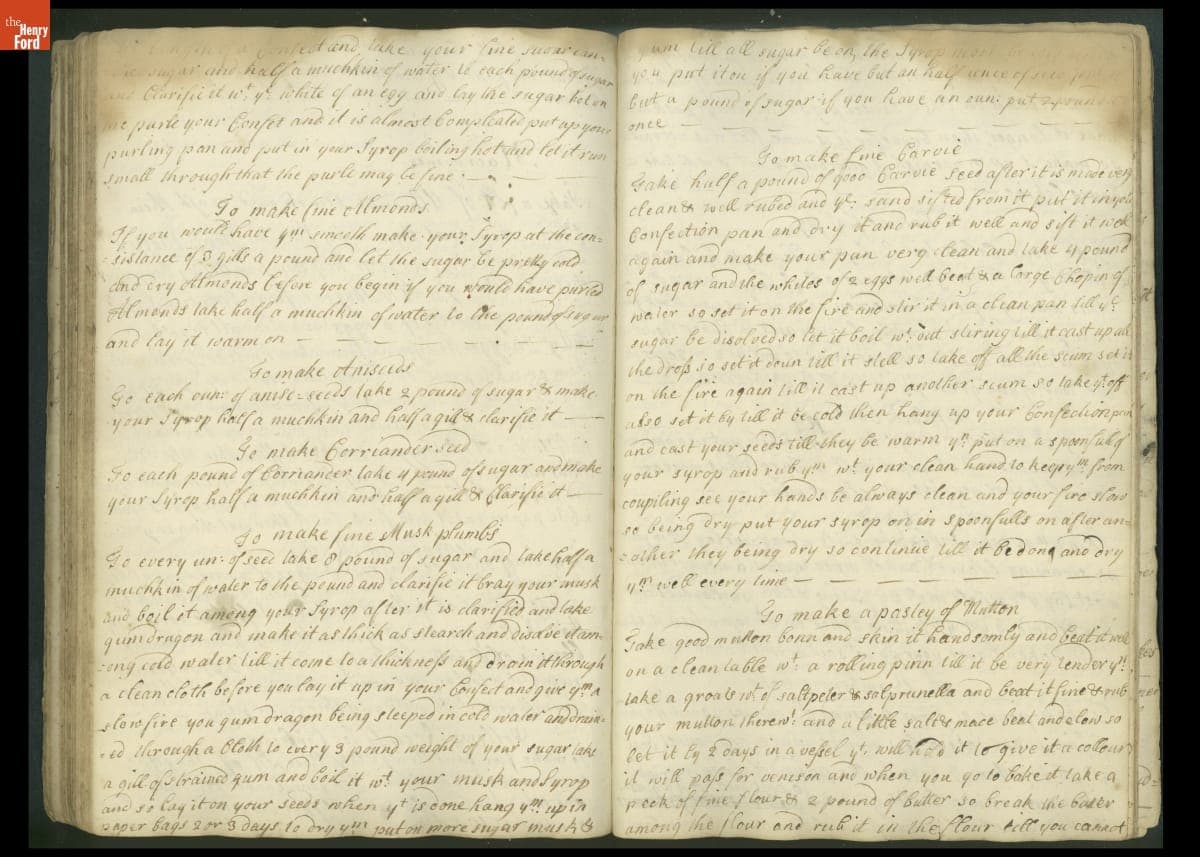 the Henry Ford
of a Confect and take your fine sugar can=
sugar and half a muchkin of water to each pound of sugar
and Clarifie it wt. ye. white of an egg and lay the sugar hot on
purle your Confet and it is almost Compleated put up your
purling pan and put in your Syrop boiling hot and let it run
small through that the purle may be fine.
To make fine Almonds
If you would have ym smooth make your Syrop at the con=
=sistance of 3 gills a pound and let the sugar be pretty cold
And dry Almonds before you begin if you would have purled
Almonds take half a muchkin of water to the pound of sugar
and lay it warm on
To make Aniseeds
To each oun: of anise=seeds take 2 pound of sugar & make
your Syrop half a muchkin and half a gill & clarifie it
To make Corriander seed
To each pound of Corriander take 4 pound of sugar and make
your Syrop half a muchkin and half a gill & Clarifie it
To make fine Musk plumbs
To every un: of seed take 8 pound of sugar and take half a
muchkin of water to the pound and clarifie it bray your musk
and boil it among your Syrop after it is clarified and take
gumdragon and make it as thick as stearch and disolve it am=
=ong cold water till it come to a thickness and drain it through
a clean cloth before you lay it up in your Confect and give ym a
slow fire you gumdragon being steeped in cold water and drain=
=ed through a Cloth to every 3 pound weight of your sugar take
a gill of strained gum and boil it wt. your musk and Syrop
and so lay it on your seeds when yt is done hang ym up in
paper bags 2 or 3 days to dry ym put on more sugar musk &
gum till all sugar be on, the Syrop must
you put it on if you have but an half unce of seed put
but a pound of sugar if you have an oun: put 2 pound
once
To make fine Carvie
Take half a pound of good Carvie seed after it is made very
clean & well rubed and ye. sand sifted from it put it in your
Confection pan and dry it and rub it well and sift it well
again and make your pan very clean and take 4 pound
of sugar and the whites of 2 eggs well beat & a large Chopin of
water so set it on the fire and stir it in a clean pan till ye.
sugar be disolved so let it boil wt. out stiring till it cast up all
the dross so set it doun till it stell so take off all the scum set it
on the fire again till it cast up another scum so take yt. off
also set it by till it be cold then hang up your Confection pan
and cast your seeds till they be warm yn. put on a spoonfull of
your syrop and rub ym wt. your clean hand to keep ym from
coupiling see your hands be always clean and your fire slow
so being dry put your syrop on in spoonfulls on after an=
=other they being dry so continue till it be done and dry
ym well every time
To make a pasley of Mutton
Take good mutton boun and skin it handsomly and beat it well
on a clean table wt. a rolling pinn till it be very tender yn.
take a groats wt. of saltpeter & salprunella and beat it fine & rub
your mutton therewt. and a little salt & mace beat and clow so
let it ly 2 days in a vessel yt. will hold it to give it a collour
it will pass for venison and when you go to bake it take a
peck of fine flour & 2 pound of butter so break the butter
among the flour and rub it in the flour till you cannot